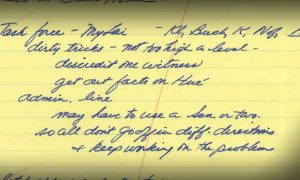 Task force - My Lai - Kl, Buch, K, Nof, L
dirty tricks - not too high a level -
discredit one witness
get out facts on Hué
admin. line
may have to use a Sen. or two.
so all don't go off in diff. directions
& keep working on the problem